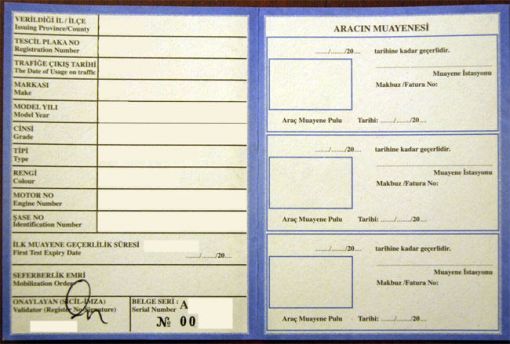 VERİLDİĞİ İL / İLÇE
Issuing Province/County
TESCİL PLAKA NO
Registration Number
TRAFİĞE ÇIKIŞ TARİHİ
The Date of Usage on traffic
MARKASI
Make
MODEL YILI
Model Year
CİNSİ
Grade
TİPİ
Type
RENGİ
Colour
MOTOR NO
Engine Number
ŞASE NO
Identification Number
İLK MUAYENE GEÇERLİLİK SÜRESİ
First Test Expiry Date ....../....../20....
SEFERBERLİK EMRİ
Mobilization Order
ONAYLAYAN (SİCİL-İMZA)
Validator (Register No Signature)
BELGE SERİ : A
Serial Number
№ 00
ARACIN MUAYENESİ
....../....../20.... tarihine kadar geçerlidir.
Muayene İstasyonu
Makbuz /Fatura No:
Araç Muayene Pulu Tarihi: ....../....../20....
....../....../20.... tarihine kadar geçerlidir.
Muayene İstasyonu
Makbuz /Fatura No:
Araç Muayene Pulu Tarihi: ....../....../20....
....../....../20.... tarihine kadar geçerlidir.
Muayene İstasyonu
Makbuz /Fatura No:
Araç Muayene Pulu Tarihi: ....../....../20....